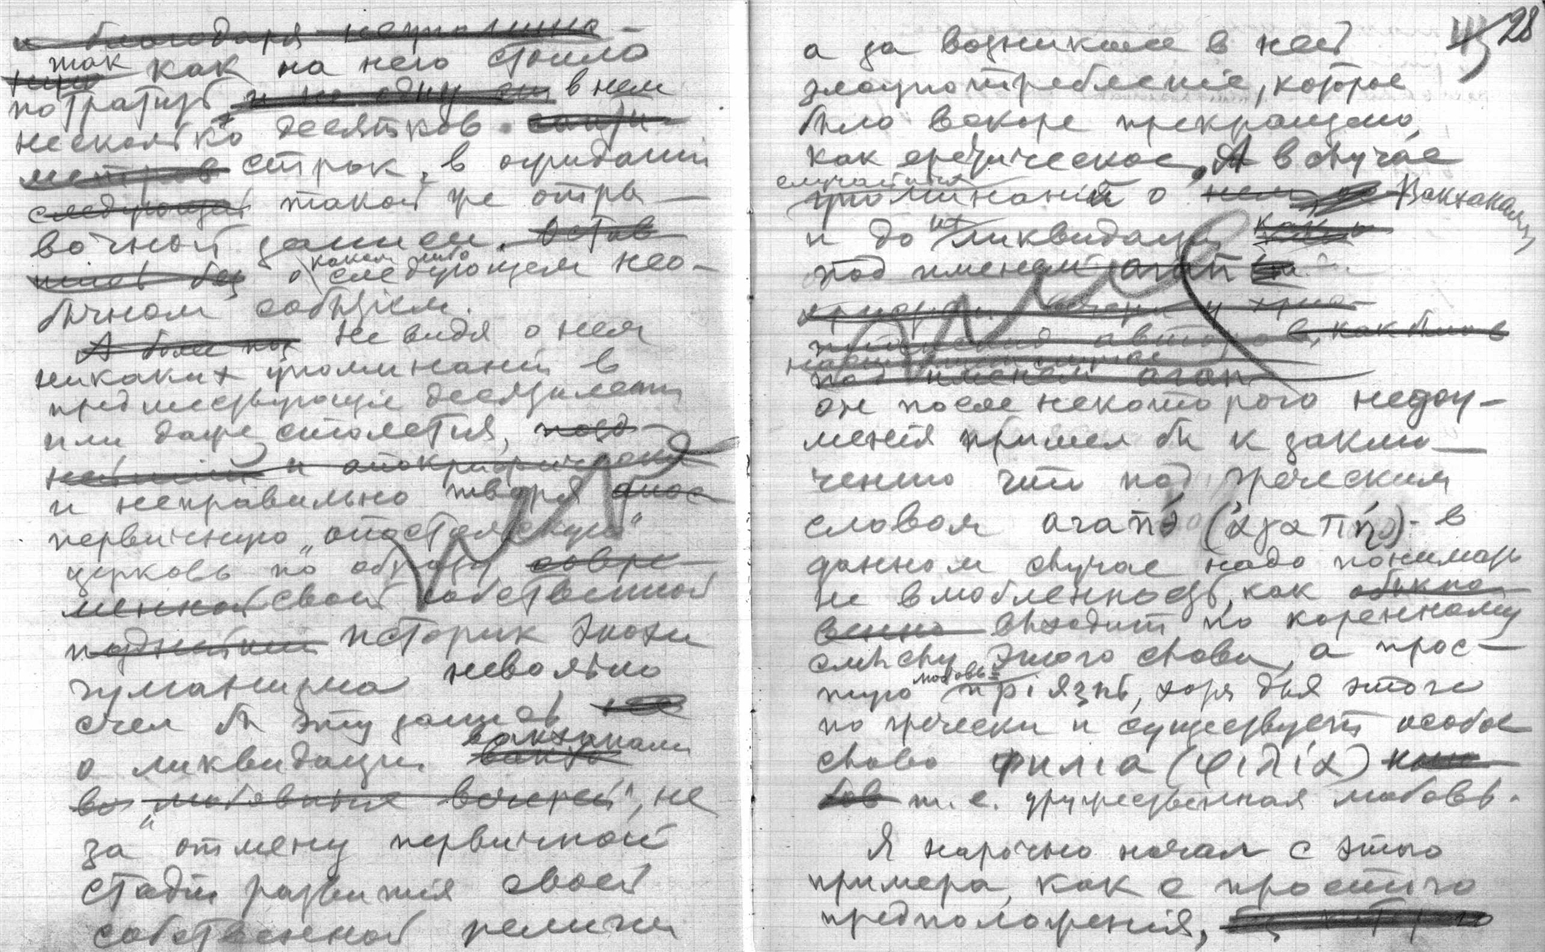 и благодаря
так как на него стоило
потратить и не одну в нем
несколько десятков
метров строк, в ожидании
следующей такой же отры-
вочной записи. Остав
о каком либо следующем нео-
бычном событiи.
А более не видя о нем
никаких упоминанiй в
предшествующiе десятилетiя
или даже столетiя, позд-
нейшiй и апокрифическiя
и неправильно творя
первичную „апостольскую“
церковь по образу совре-
менной своей собственной
историк эпохи
гуманизма невольно
счел бы эту запись
о ликвидацiи вакханали
„любовных вечерей“, не
за отмену первичной
стадiи развитiя своей
собственной религiи
28
а за возникшее в ней
злоупотребленiе, которое
было вскоре прекращено,
как еретическое. А в случае
случайных
упоминанiй о Вакханалиях
и до их ликвидацiи
под именем агап
под именем агап
он после некоторого недоу-
менiя пришел бы к заклю-
чению что под греческим
словом агапэ (ἀγάπη) в
данном случае надо понимать
не влюбленность, как обыкно-
венно выходит по коренному
смыслу этого слова, а прос-
тую любовь-прiязнь, хотя для этого
по гречески и существует особое
слово филiа (φιλία)
т. е. дружественная любовь.
Я нарочно начал с этого
примера, как с простого
предположенiя,